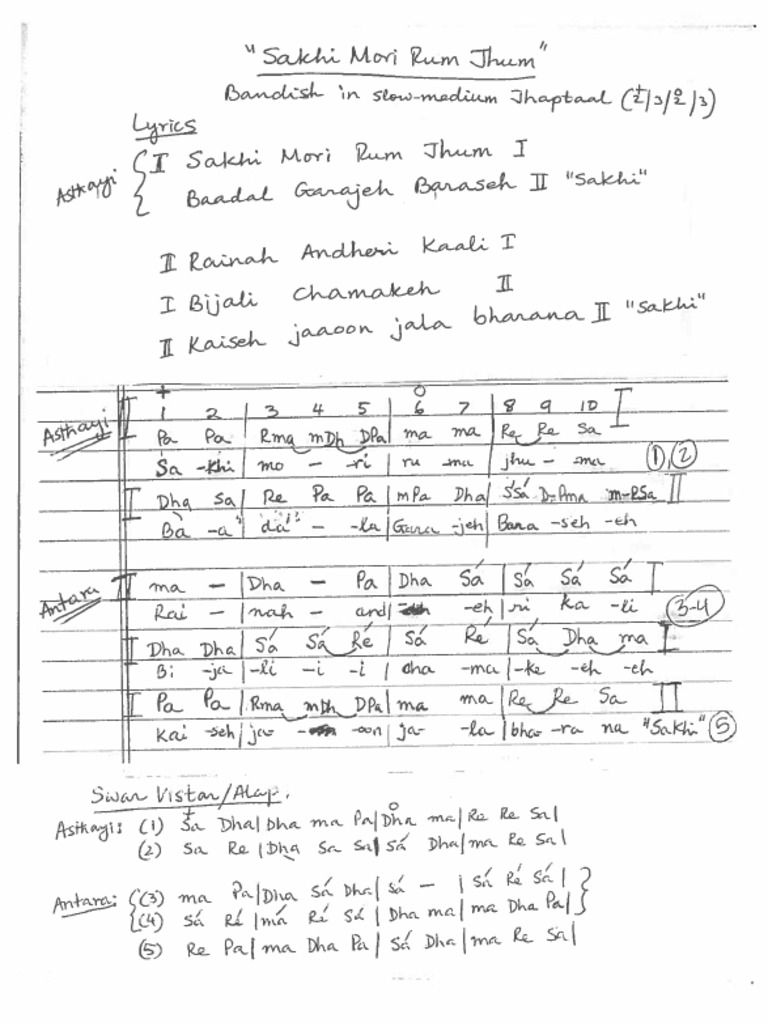 "Sakhi Mori Rum Jhum"
Bandish in slow-medium Jhaptaal (2/3/2/3)
+ 0
Lyrics
Asthayi { I Sakhi Mori Rum Jhum I
Baadal Garajeh Baraseh II "Sakhi"
II Rainah Andheri Kaali I
I Bijali Chamakeh II
II Kaiseh jaaoon jala bharana II "Sakhi"
+ 0
Asthayi II 1 2 | 3 4 5 | 6 7 | 8 9 10 I
Pa Pa | Rma mDh DPa | ma ma | Re Re Sa
Sa -khi | mo - -ri | ru -ma | jhu - -ma (1),(2)
I Dha Sa | Re Pa Pa | mPa Dha | SáSá D-Pma m-RSa II
Bà -a | da - -la | Gara -jeh | Bara -seh -eh
Antara II ma - | Dha - Pa | Dha Sá | Sá Sá Sá I
Rai - | nah - and | -eh | ri ka -li (3-4)
I Dha Dha | Sá Sá Ré | Sá Ré | Sá Dha ma I
Bi -ja | -li -i -i | cha -ma | -ke -eh -eh
I Pa Pa | Rma mDh DPa | ma ma | Re Re Sa II
Kai -seh | ja- -oon | ja- -la | bha- -ra na "Sakhi" (5)
Swar Vistar/Alap.
+ 0
Asthayi: (1) Sa Dha | Dha ma Pa | Dha ma | Re Re Sa |
(2) Sa Re | Dha Sa Sa | Sá Dha | ma Re Sa |
Antara: { (3) ma Pa | Dha Sá Dha | Sá - | Sá Ré Sá | }
{ (4) Sá Ré | má Ré Sá | Dha ma | ma Dha Pa | }
(5) Re Pa | ma Dha Pa | Sá Dha | ma Re Sa |